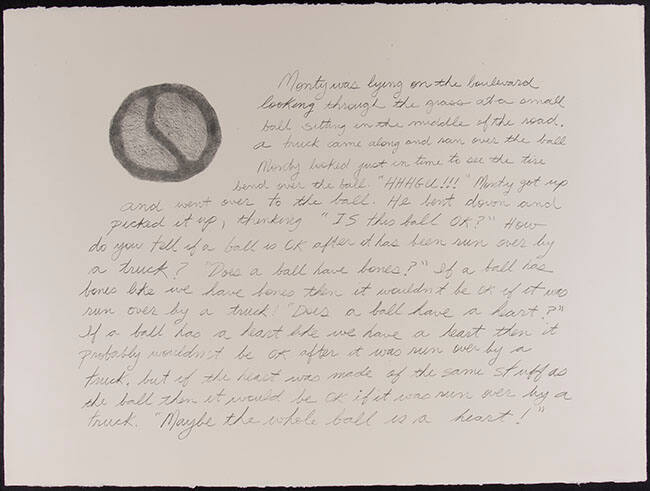 Monty was lying on the boulevard
looking through the grass at a small
ball sitting in the middle of the road.
a truck came along and ran over the ball
Monty looked just in time to see the tire
bend over the ball. "HHHGU!!!" Monty got up
and went over to the ball. He bent down and
picked it up, thinking "IS this ball OK?" How
do you tell if a ball is OK after it has been run over by
a truck? "Does a ball have bones?" If a ball has
bones like we have bones then it wouldn't be OK if it was
run over by a truck! "Does a ball have a heart?"
If a ball has a heart like we have a heart then it
probably wouldn't be OK after it was run over by a
truck, but if the heart was made of the same stuff as
the ball then it would be OK if it was run over by a
truck. "Maybe the whole ball is a heart!"